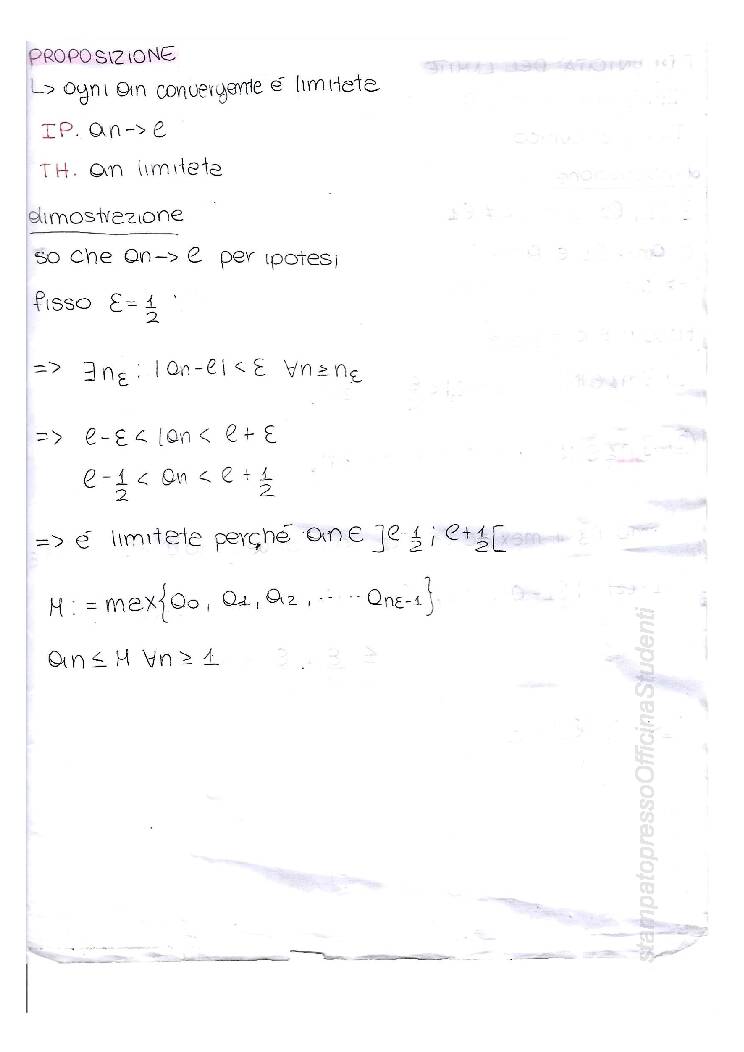 PROPOSIZIONE
↳ ogni an convergente é limitata
IP. an -> l
TH. an limitata
dimostrazione
so che an -> l per ipotesi
fisso ε = 1/2
=> ∃ nε : |an - l| < ε ∀n ≥ nε
=> l - ε < |an < l + ε
l - 1/2 < an < l + 1/2
=> é limitata perché an ∈ ]l 1/2 ; l + 1/2[
M := max{a0, a1, a2, ..... anε-1}
an ≤ M ∀n ≥ 1
stampatopressoOfficinaStudenti